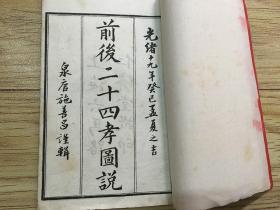 光緒十九年癸巳孟夏之吉
前後二十四孝圖說
泉唐施善昌謹輯